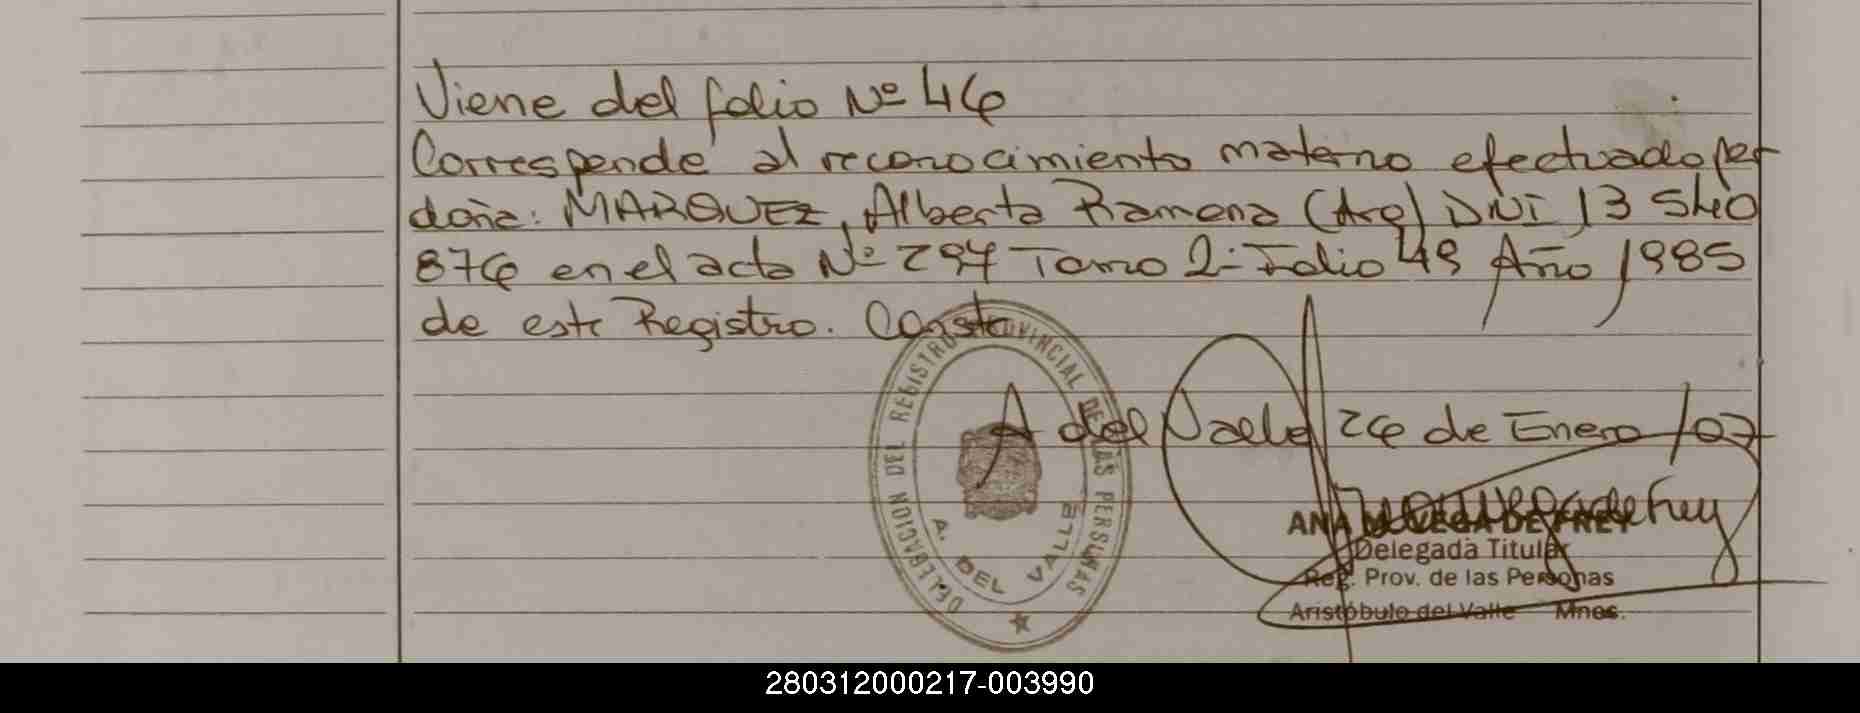 Viene del folio Nº 46
Corresponde al reconocimiento materno efectuado por
doña: MARQUEZ, Alberta Ramona (Arg) DNI 13 540
876 en el acta Nº 294 Tomo 2- Folio 49 Año 1985
de este Registro. Conste
A del Valle 26 de Enero /07
DELEGACION DEL REGISTRO PROVINCIAL DE LAS PERSONAS
A. DEL VALLE
ANA M. VEGA DE FREY
Delegada Titular
Reg. Prov. de las Personas
Aristóbulo del Valle Mnes.
280312000217-003990